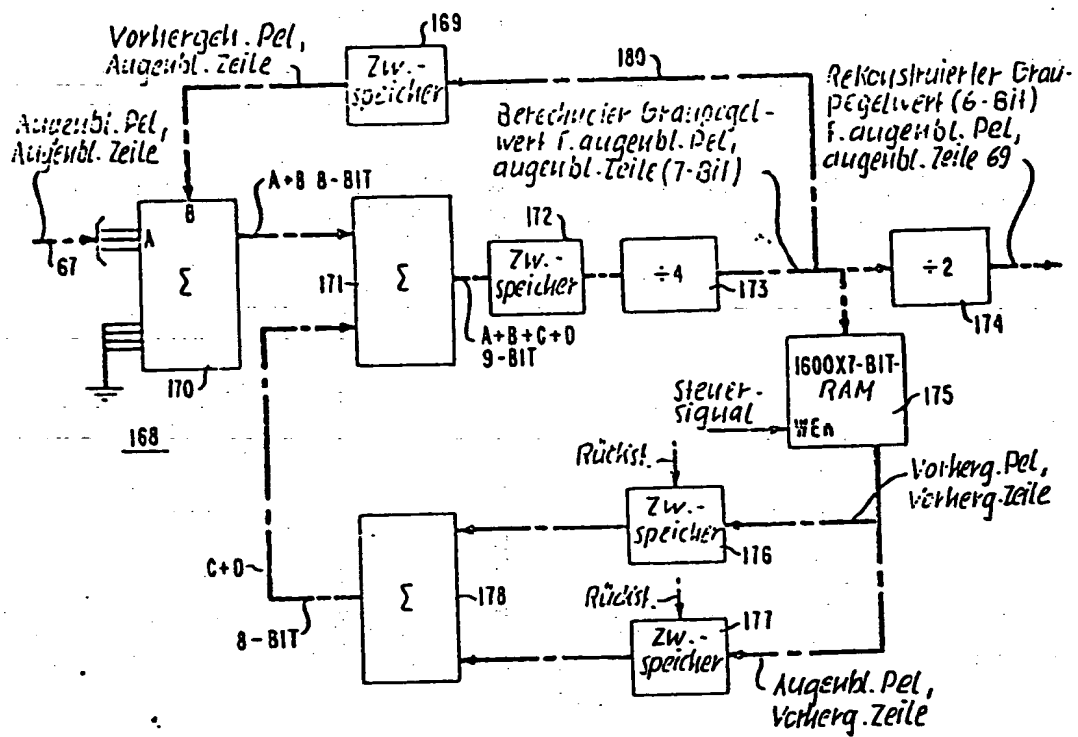 Vorhergeh. Pel,
Augenbl. Zeile
169
Zw.-
speicher
180
Rekonstruierter Grau-
pegelwert (6-Bit)
f. augenbl. Pel,
augenbl. Zeile 69
Berechneter Graupegel-
wert f. augenbl. Pel,
augenbl. Zeile (7-Bit)
Augenbl. Pel,
Augenbl. Zeile
67
A
B
Σ
170
A+B 8-BIT
171
Σ
A+B+C+D
9-BIT
172
Zw.-
speicher
÷4
173
÷2
174
1600X7-BIT-
RAM
WEn
175
Steuer-
signal
168
Rückst.
Zw.-
speicher
176
Vorherg. Pel,
Vorherg. Zeile
C+D
8-BIT
Σ
178
Rückst.
177
Zw.-
speicher
Augenbl. Pel,
Vorherg. Zeile